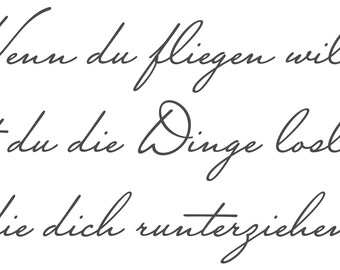 Wenn du fliegen wil
t du die Dinge losl
ie dich runterziehen